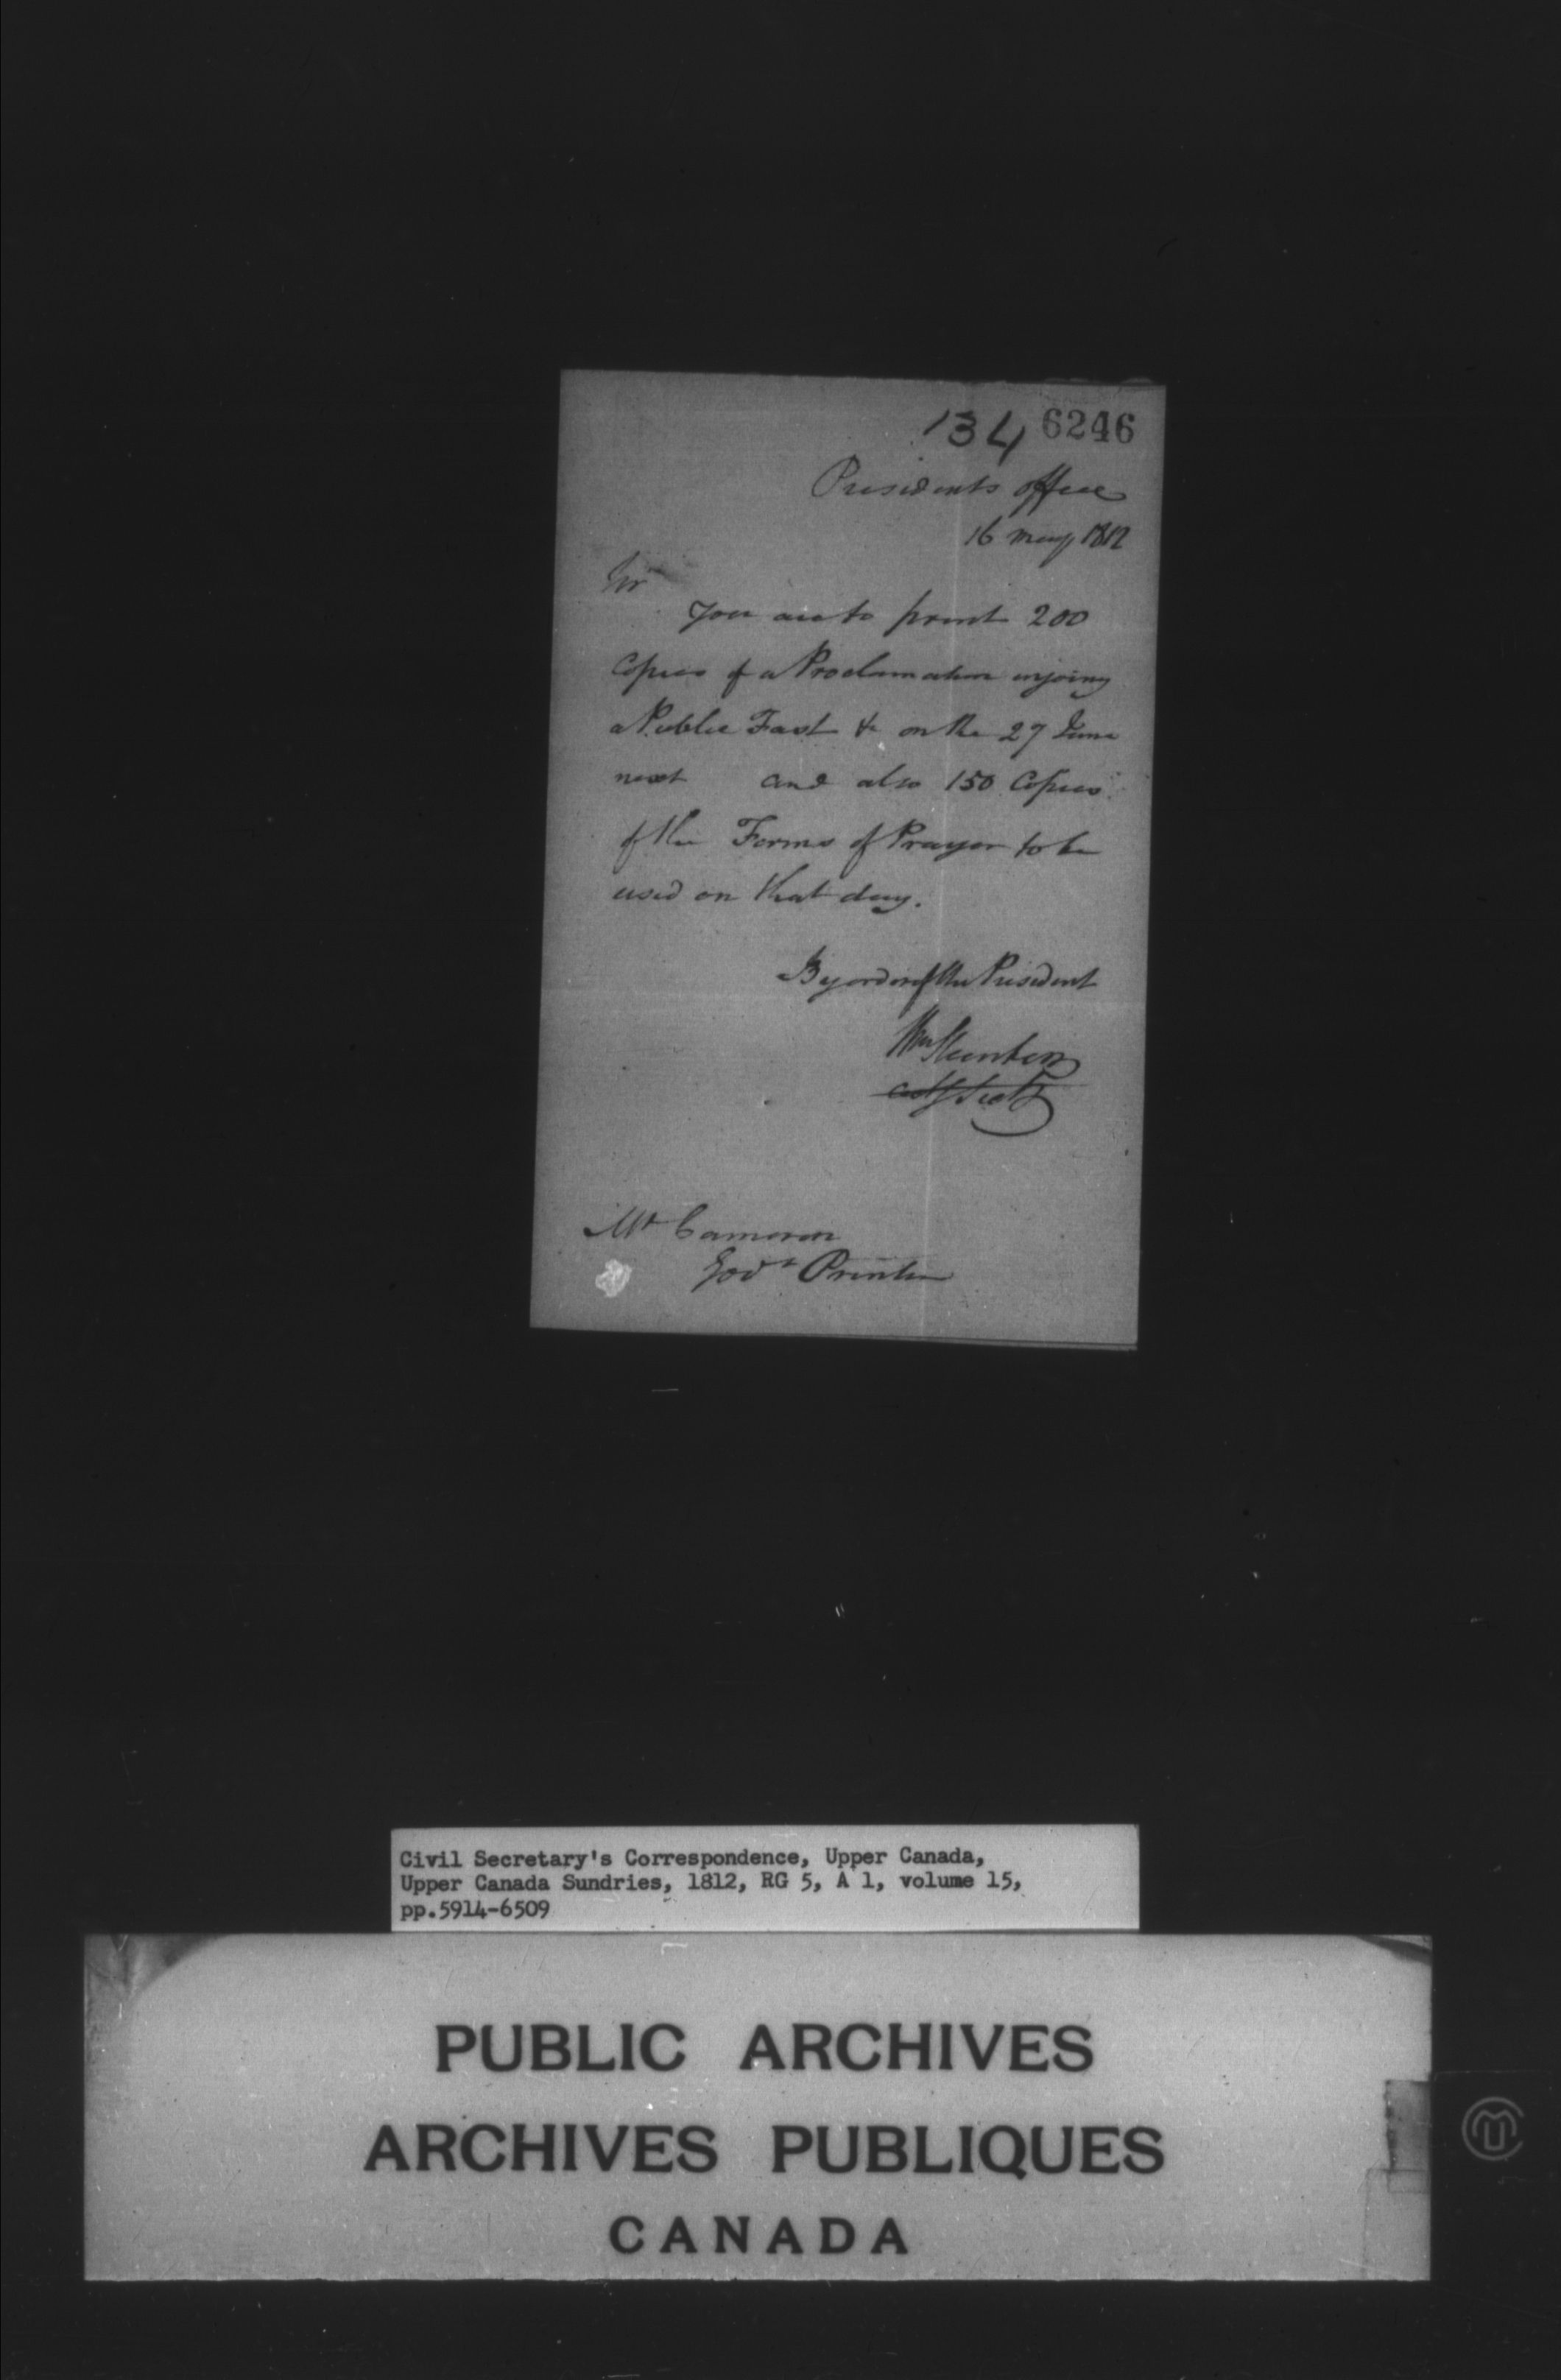 134 6246
Presidents office
16 May 1812
Sir
You are to print 200
Copies of a Proclamation enjoing
a Public Fast &c on the 27 June
next and also 150 Copies
of the Forms of Prayer to be
used on that day.
By order of the President
Wm Stanton
Asst Secy
Mr Cameron
Govt Printer
Civil Secretary's Correspondence, Upper Canada,
Upper Canada Sundries, 1812, RG 5, A 1, volume 15,
pp.5914-6509
PUBLIC ARCHIVES
ARCHIVES PUBLIQUES
CANADA